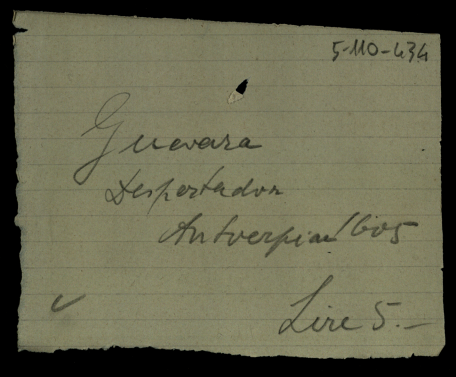 5-110-434
Guevara
Despertador
Antverpiae 1605
Lire 5.—